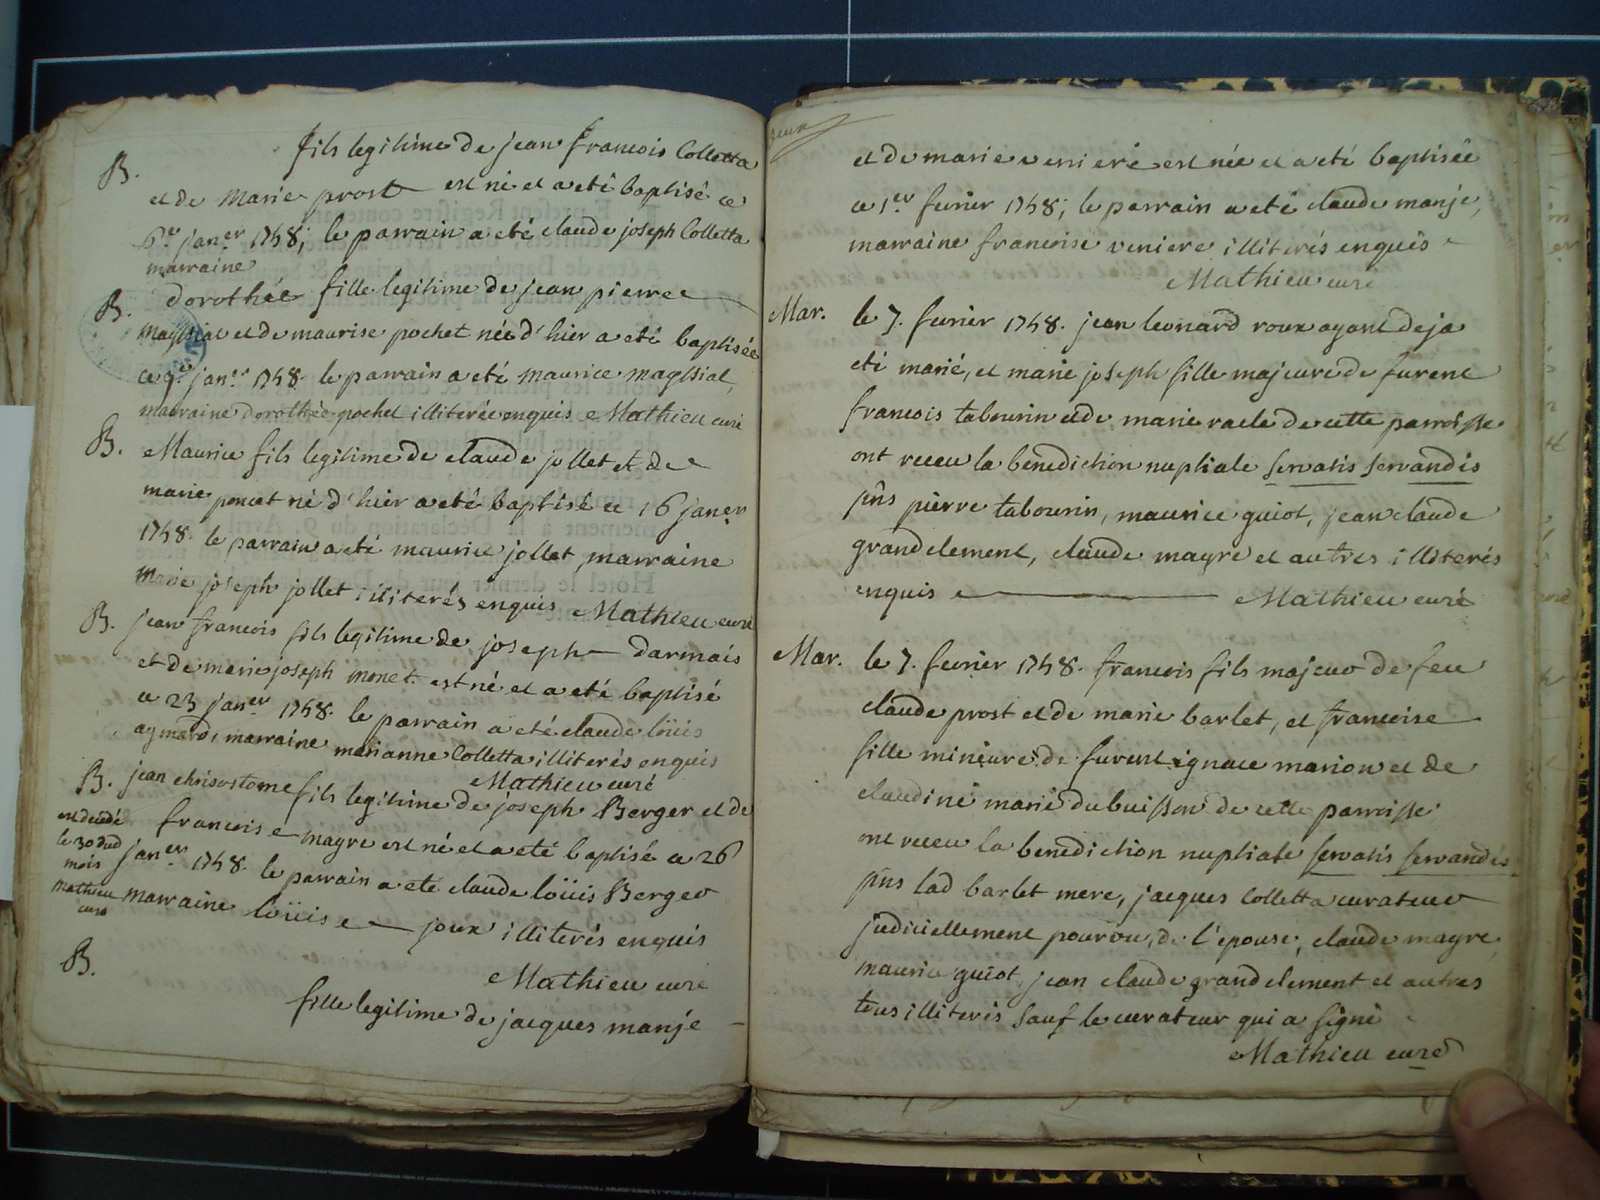 B. fils legitime de jean francois Colletta
et de Marie prost est né et a eté baptisé ce
6.e jan.er 1758; le parrain a eté claude joseph Colletta
marraine
B. dorothée fille legitime de jean pierre
magssiat et de maurise pochet née d'hier a eté baptisée
ce 9.e jan.er 1758. le parrain a eté maurice magssiat,
marraine dorothée pochet illiterée enquis Mathieu curé
B. Maurice fils legitime de claude jollet et de
marie poncet né d'hier a eté baptisé ce 16 jan.er
1758. le parrain a eté maurice jollet marraine
marie joseph jollet illiterés enquis Mathieu curé
B. jean francois fils legitime de joseph darmais
et de marie joseph monet est né et a eté baptisé
ce 23 jan.er 1758. le parrain a eté claude loüis
aymard, marraine marianne Colletta illiterés enquis
Mathieu curé
B. jean chrisostome fils legitime de joseph Berger et de
francoise mayre est né et a eté baptisé ce 26
jan.er 1758. le parrain a eté claude loüis Berger
marraine loüise joux illiterés enquis
Mathieu curé
est decedé
le 30 dud
mois
Mathieu
curé
B.
fille legitime de jacques manje
deux
et de marie veniere est née et a eté baptisée
ce 1.er fevrier 1758; le parrain a eté claude manje,
marraine francoise veniere illiterés enquis
Mathieu curé
Mar. le 7. fevrier 1758. jean leonard roux ayant deja
eté marié, et marie joseph fille majeure de furent
francois tabourin et de marie racle de cette parroisse
ont receu la benediction nuptiale servatis servandis
pñs pierre tabourin, maurice guiot, jean claude
grandclement, claude mayre et autres illiterés
enquis Mathieu curé
Mar. le 7. fevrier 1758. francois fils majeur de feu
claude prost et de marie barlet, et francoise
fille mineure de furent ignace marion et de
claudine marie dubuisson de cette parroisse
ont receu la benediction nuptiale servatis servandis
pñs lad barlet mere, jacques Colletta curateur
judiciellement pourvu de l'epouse, claude mayre,
maurice guiot, jean claude grandclement et autres
tous illiterés sauf le curateur qui a signé
Mathieu curé